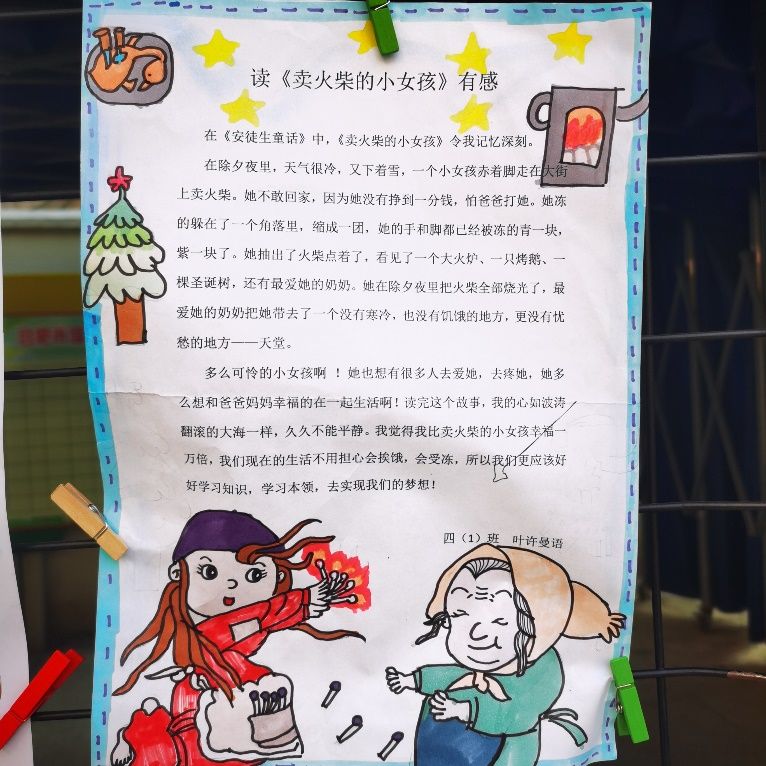 读《卖火柴的小女孩》有感
在《安徒生童话》中，《卖火柴的小女孩》令我记忆深刻。
在除夕夜里，天气很冷，又下着雪，一个小女孩赤着脚走在大街
上卖火柴。她不敢回家，因为她没有挣到一分钱，怕爸爸打她。她冻
的躲在了一个角落里，缩成一团，她的手和脚都已经被冻的青一块，
紫一块了。她抽出了火柴点着了，看见了一个大火炉、一只烤鹅、一
棵圣诞树，还有最爱她的奶奶。她在除夕夜里把火柴全部烧光了，最
爱她的奶奶把她带去了一个没有寒冷，也没有饥饿的地方，更没有忧
愁的地方——天堂。
多么可怜的小女孩啊 ！她也想有很多人去爱她，去疼她，她多
么想和爸爸妈妈幸福的在一起生活啊！读完这个故事，我的心如波涛
翻滚的大海一样，久久不能平静。我觉得我比卖火柴的小女孩幸福一
万倍，我们现在的生活不用担心会挨饿，会受冻，所以我们更应该好
好学习知识，学习本领，去实现我们的梦想！
四（1）班 叶许曼语